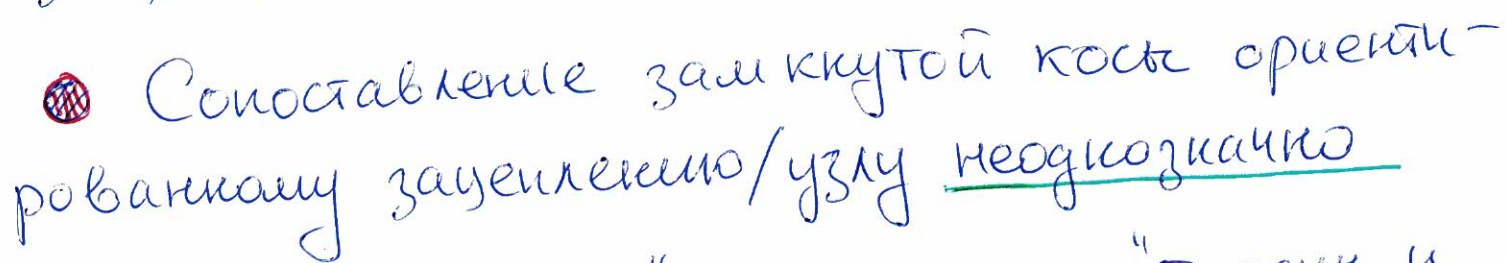 Сопоставление замкнутой косы ориенти-
рованному зацеплению/узлу неоднозначно